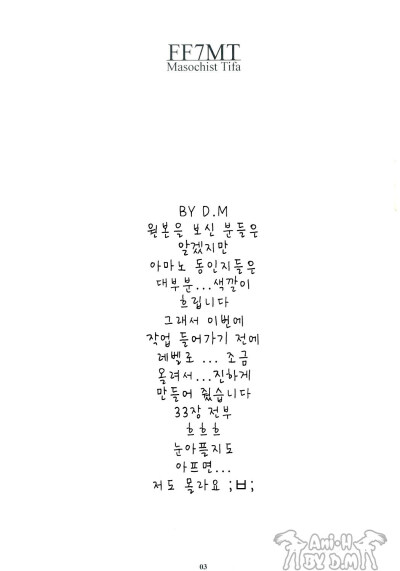 FF7MT
Masochist Tifa
BY D.M
원본을 보신 분들은
알겠지만
아마노 동인지들은
대부분...색깔이
흐립니다
그래서 이번에
작업 들어가기 전에
레벨로 ... 조금
올려서...진하게
만들어 줬습니다
33장 전부
흐흐흐
눈아플지도
아프면...
저도 몰라요 ;ㅂ;
Ani-H
BY D.M
03